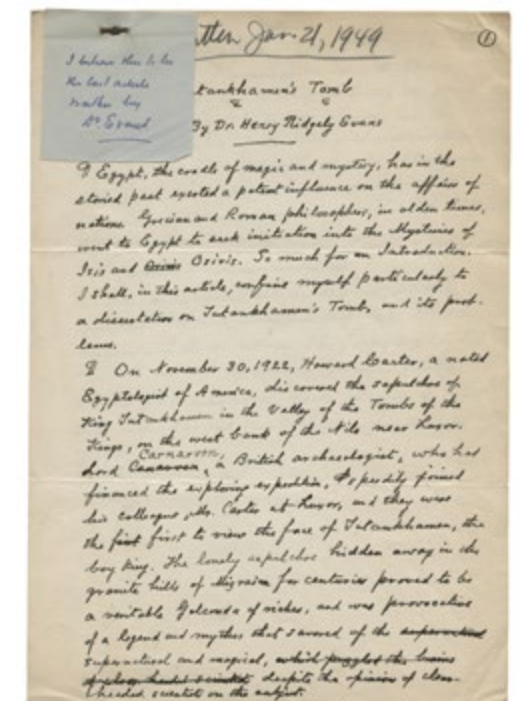 I believe this to be
the last article
written by
Dr. Evans
itten Jan. 21, 1949
1
tankhamen's Tomb
By Dr. Henry Ridgely Evans
¶ Egypt, the cradle of magic and mystery, has in the
storied past exerted a potent influence on the affairs of
nations. Grecian and Roman philosophers, in olden times,
went to Egypt to seek initiation into the Mysteries of
Isis and Osiris. So much for an Introduction.
I shall, in this article, confine myself particularly to
a dissertation on Tutankhamen's Tomb, and its prob-
lems.
¶ On November 30, 1922, Howard Carter, a noted
Egyptologist of America, discovered the sepulchre of
King Tutankhamen in the Valley of the Tombs of the
Kings, on the west bank of the Nile near Luxor.
Carnarvon,
Lord a British archaeologist, who had
financed the exploring expedition, speedily joined
his colleague, Mr. Carter at Luxor, and they were
the first first to view the face of Tutankhamen, the
boy king. The lonely sepulchre hidden away in the
granite hills of Mizraim for centuries proved to be
a veritable Golconda of riches, and was provocative
of a legend and mythos that savored of the supernatural
supernatural and magical, which puzzled the brains
of clear headed scientists despite the opinion of clear-
headed scientist on the subject.